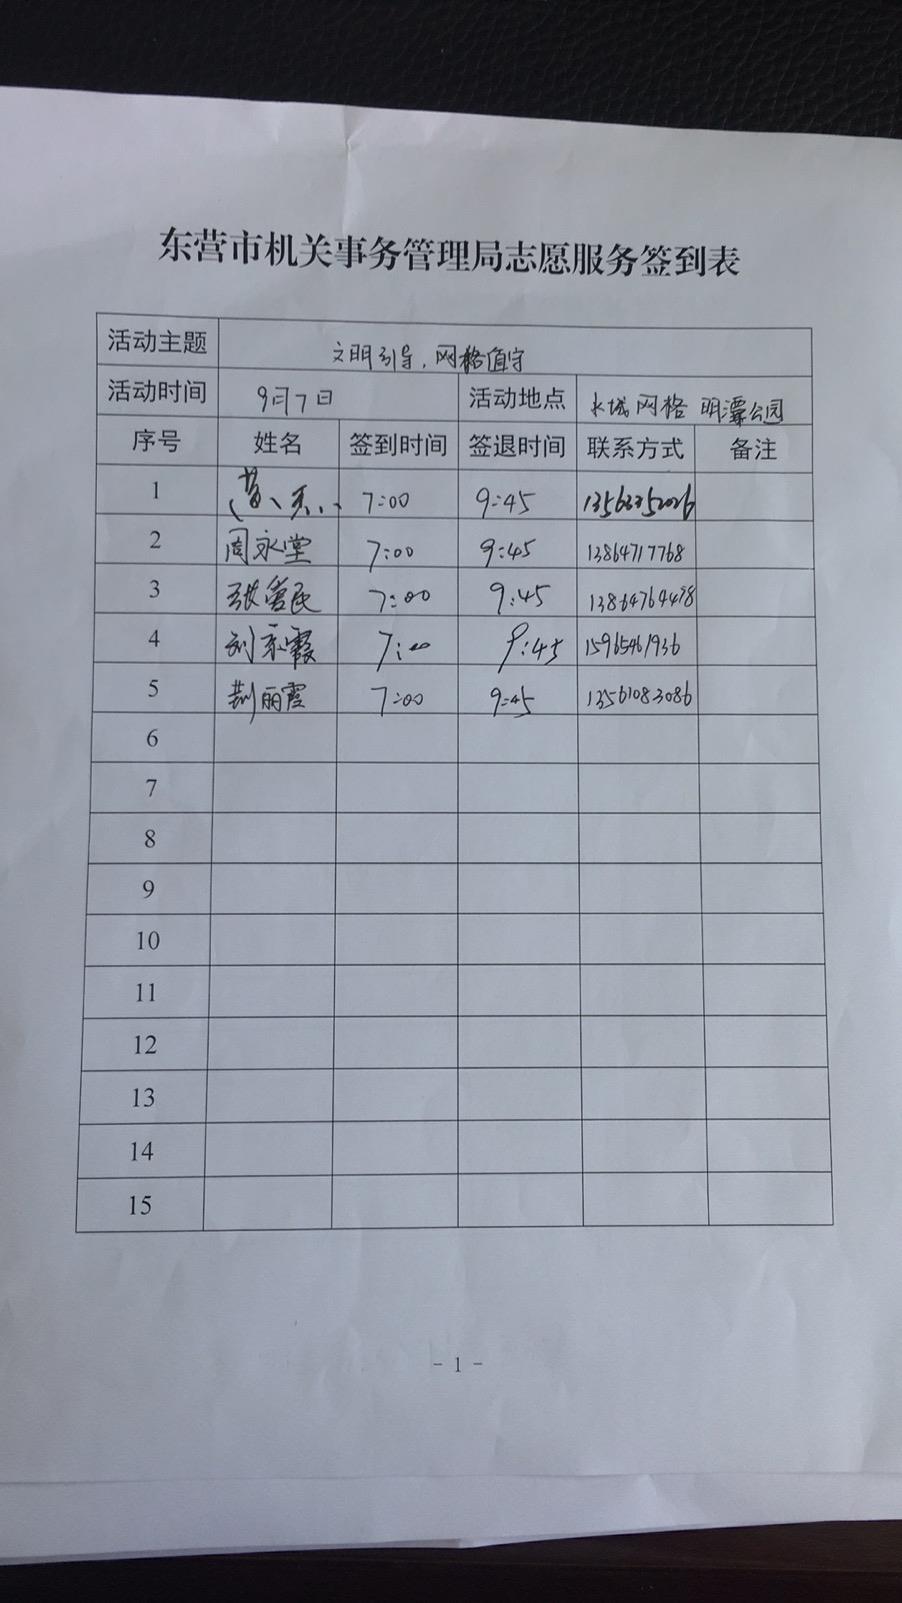 东营市机关事务管理局志愿服务签到表
活动主题 文明引导,网格值守
活动时间 9月7日 活动地点 水城网格 明潭公园
序号 姓名 签到时间 签退时间 联系方式 备注
1 7:00 9:45
2 周永堂 7:00 9:45 13864717768
3 张营民 7:00 9:45 13864764478
4 7:00 9:45 15965461936
5 荆丽霞 7:00 9:45 13561083086
6
7
8
9
10
11
12
13
14
15
- 1 -